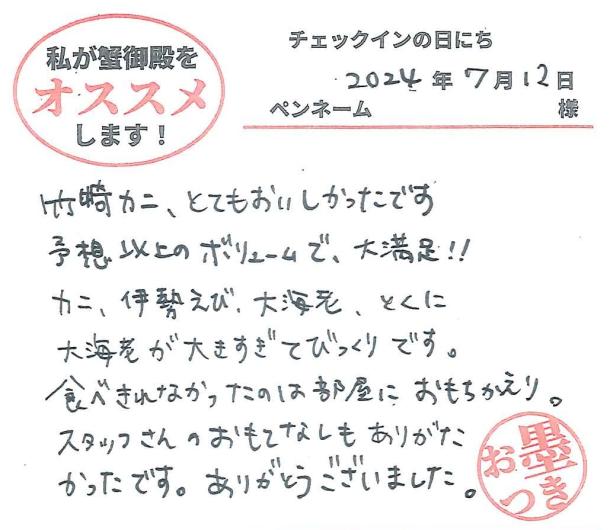 私が蟹御殿を
オススメ
します！
チェックインの日にち
2024年7月12日
ペンネーム 様
竹崎カニ、とてもおいしかったです
予想以上のボリュームで、大満足!!
カニ、伊勢えび、大海老、とくに
大海老が大きすぎてびっくりです。
食べきれなかったのは部屋におもちかえり。
スタッフさんのおもてなしもありがた
かったです。ありがとうございました。
お墨
つき